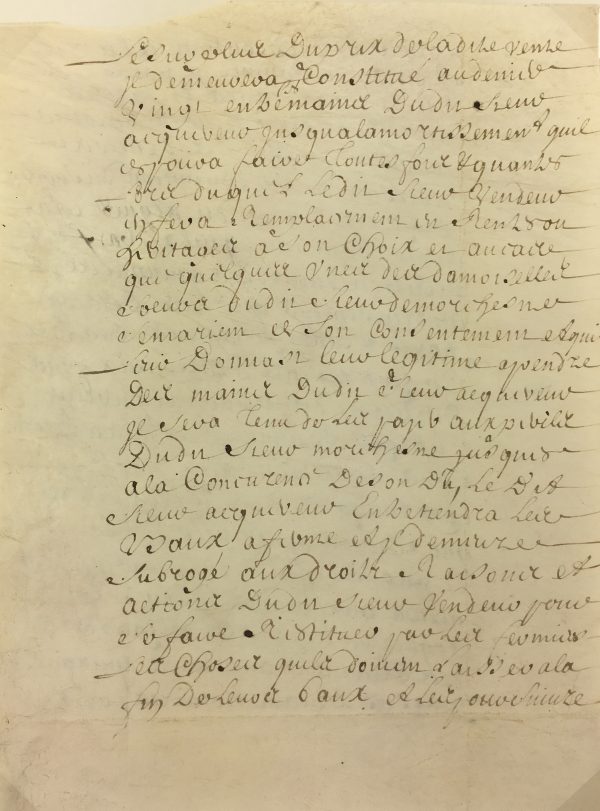 Le surplus Du prix de ladite vente
Il demeurera Constitué au denier
Vingt en les mains Dudit sieur
acquereur jusqua lamortissement quil
en poura faire touttes fois & quantes
lors duquel Ledit sieur Vendeur
en fera Remplacement en Rentes ou
heritages a son Choix et au cas
que quelques unes des damoiselles
soeurs dudit sieur de morchesne
se mariem de Son Consentement et qui
leur Donnast leur legitime a prendre
Des mains Dudit sieur acquereur
Il sera tenu de les payer aux prieres
Dudit sieur morchesne jusques
a la Concurence De son Du, Le Dit
sieur acquereur Entretiendra les
Baux a ferme et Il demeure
Subrogé aux droits Raisons et
actions Dudit sieur Vendeur pour
se faire Restituer par les fermiers
les Choses quils doivent Laisser a la
fin De leurs baux et les poursuivre